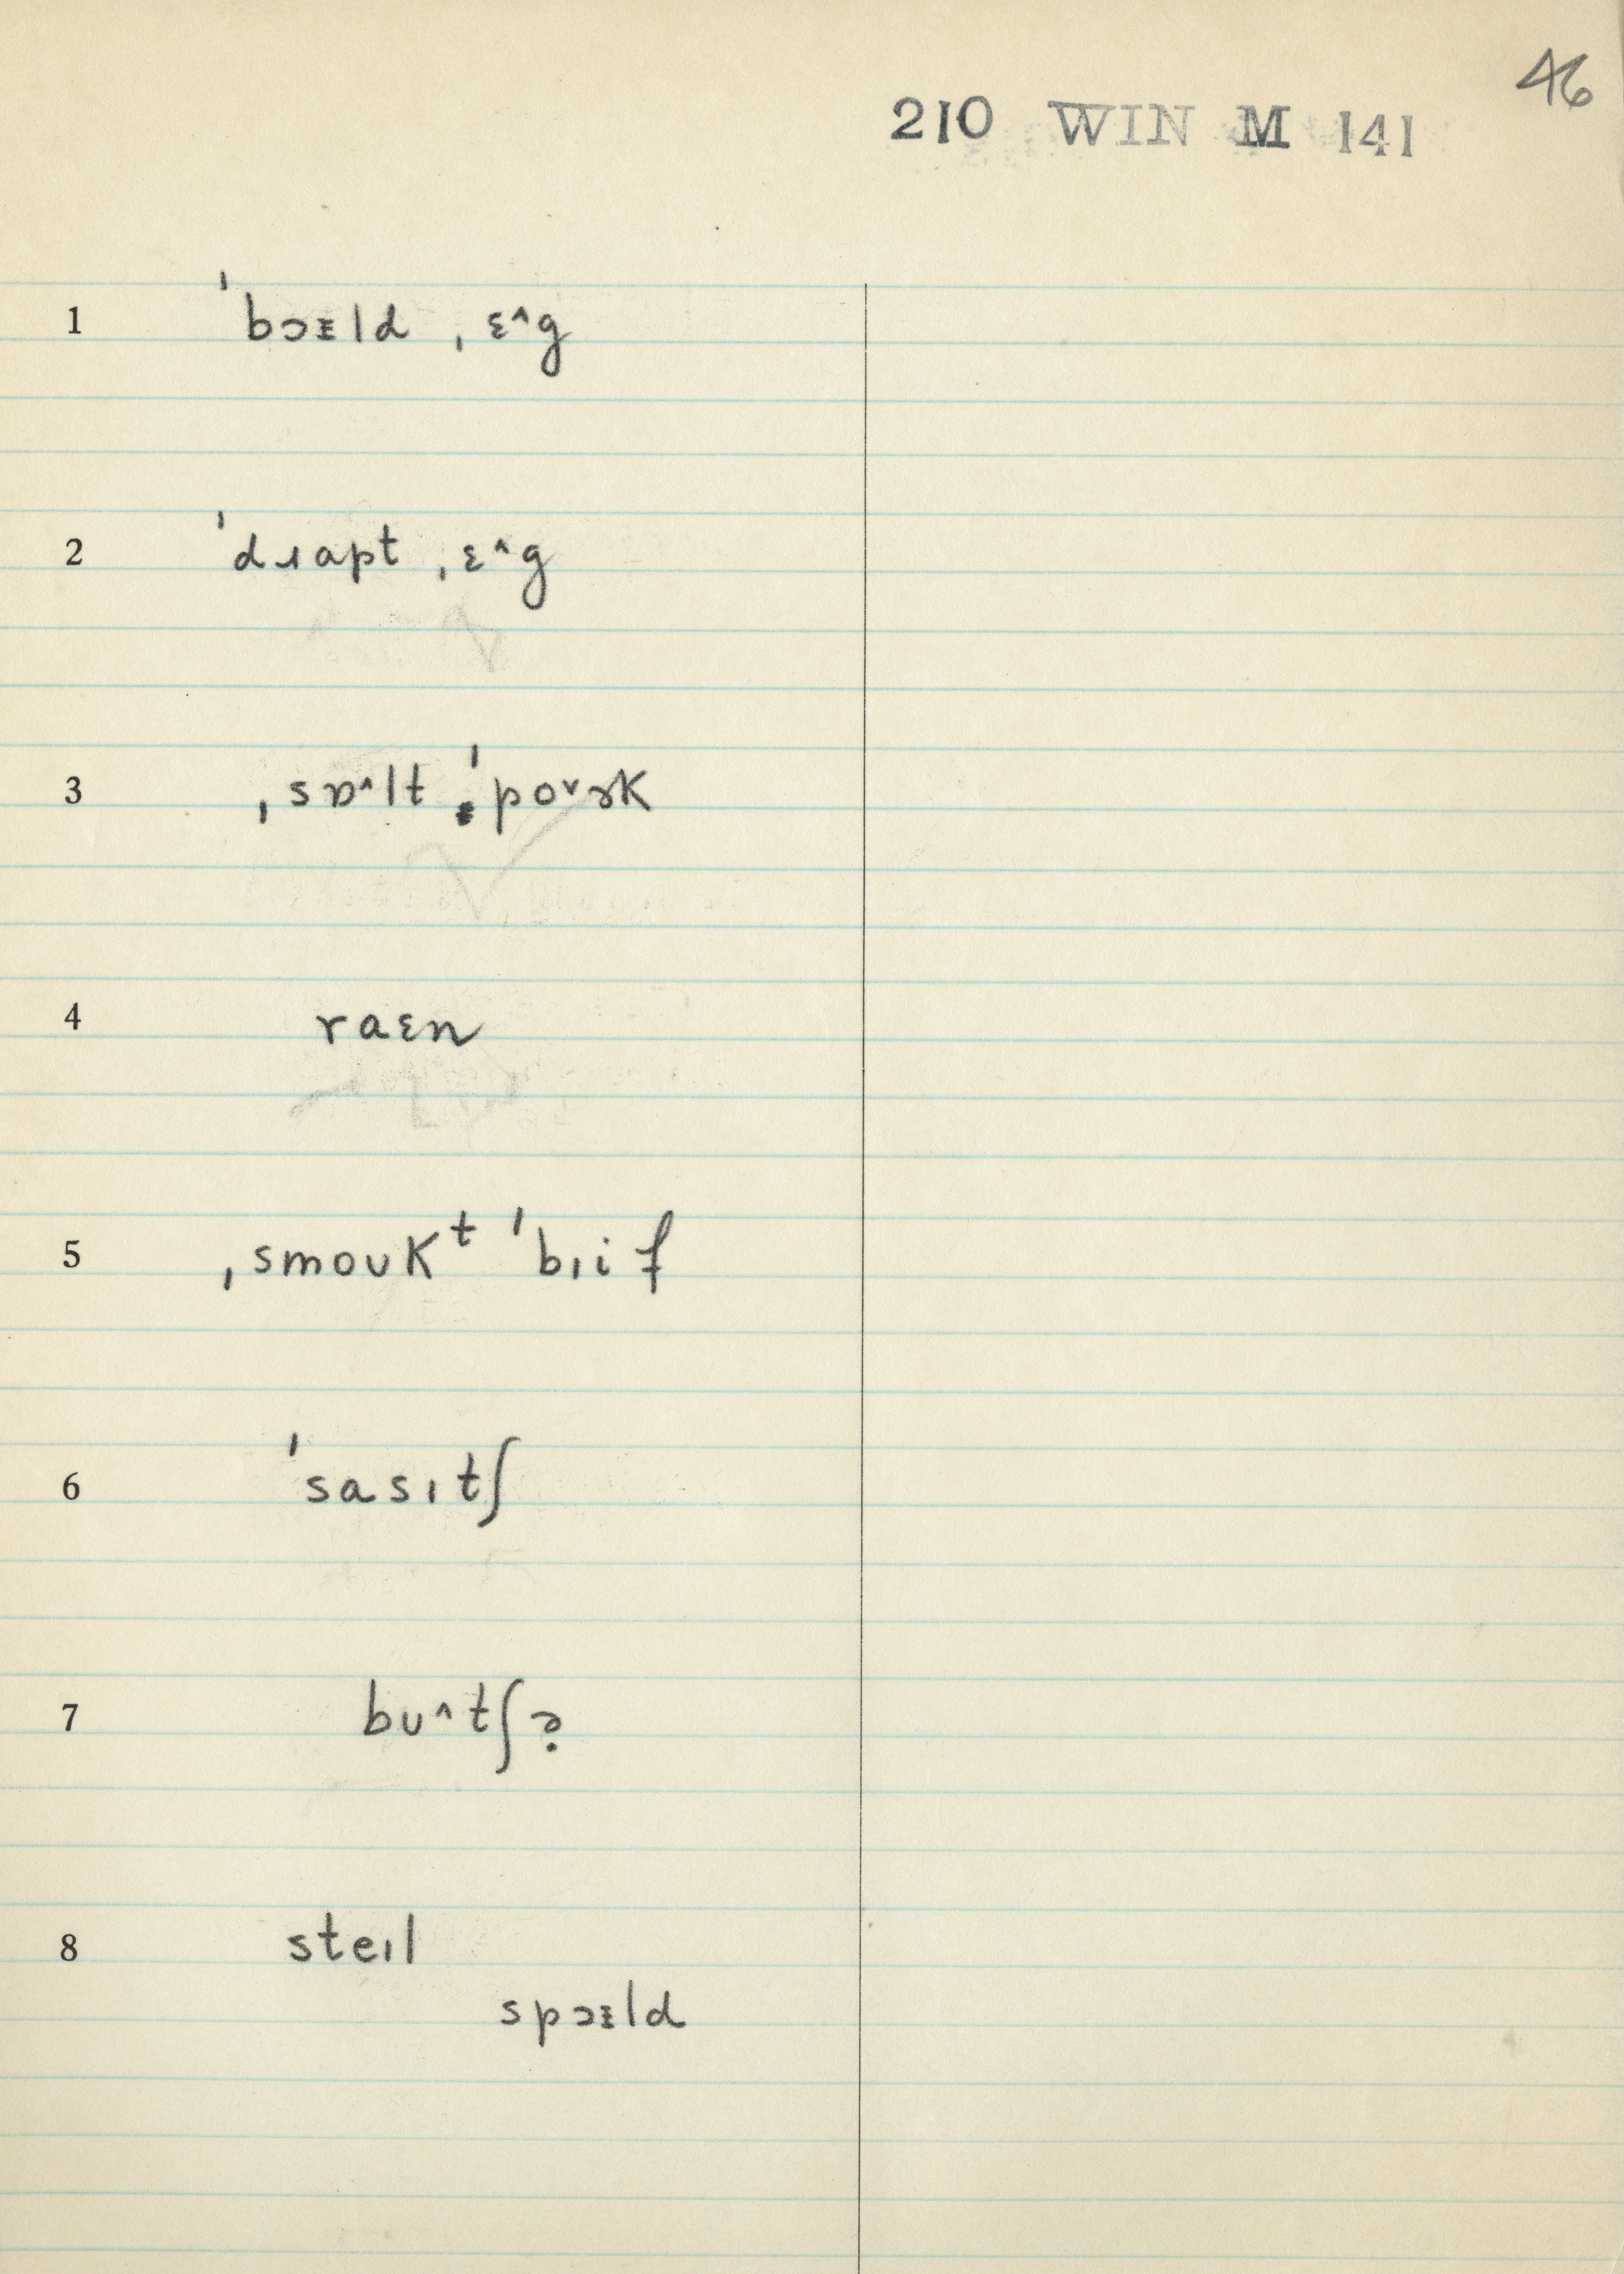 46
210 WIN M 141
1 ˈbɔᵻld ˌɛ^g
2 ˈdɹɑpt ˌɛ^g
3 ˌsɒ^lt ˈpoˇɚk
4 raɛn
5 ˌsmoʊkᵗ ˈbiif
6 ˈsɑsɪtʃ
7 bʊ^tʃɚ
8 steɪl
spɔᵻld